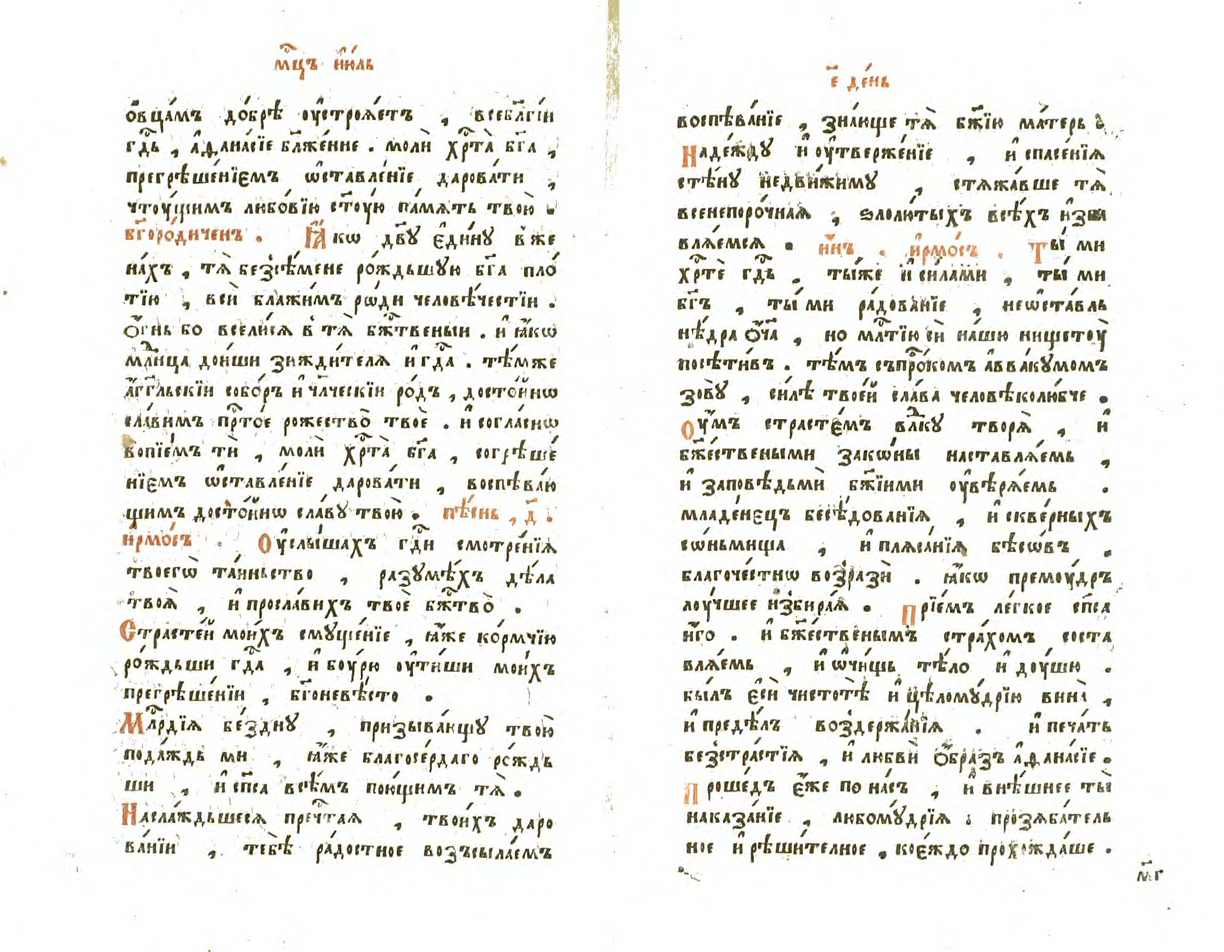 мⷭ҇цъ і҆ю́ль
ѻ҆вца́мъ до́брѣ ᲂу҆строѧ́етъ , всеблⷢ҇гіи
гдⷭ҇ь , а҆ѳана́сїе бл҃же́нне . молѝ хрⷭ҇та̀ бг҃а ,
прегрѣше́нїємъ ѡ҆ставле́нїе дарова́ти ,
чтꙋ́щимъ любо́вїю ст҃ꙋ́ю па́мѧть твою̀ .
бг҃оро́диченъ . Ꙗ҆́кѡ дв҃ꙋ є҆ди́нꙋ в же
на́хъ , тѧ̀ без̾сѣ́мене ро́ждьшꙋю бг҃а пло́
тїю , всѝ блажи́мъ ро́ди человѣ́честїи .
Ѻ҆́гнь бо всели́сѧ в тѧ̀ бжⷭ҇твеныи . и҆ ꙗ҆́кѡ
млⷣнца дои́ши зижди́телѧ и҆ гдⷭ҇а . тѣ́мже
а҆́гг҃льскїи собо́ръ и҆ чл҃ческїи ро́дъ , досто́йнѡ
сла́вимъ прⷭ҇то́е рожество̀ твоѐ . и҆ согла́снѡ
вопїе́мъ ти , молѝ хрⷭ҇та̀ бг҃а , согрѣше́
нїємъ ѡ҆ставле́нїе дарова́ти , воспѣва́ю
щимъ досто́йнѡ сла́вꙋ твою̀ . пѣ́снь , д҃ .
і҆рмо́съ . Оу҆слы́шахъ гдⷭ҇и смотре́нїѧ
твоегѡ̀ та́иньство , разꙋмѣ́хъ дѣла̀
твоѧ̀ , и҆ просла́вихъ твоѐ бжⷭ҇тво̀ .
Страсте́й мои́хъ смꙋще́нїе , ꙗ҆́же ко́рмчїю
ро́ждьши гдⷭ҇а , и҆ бꙋ́рю ᲂу҆тиши̂ мои́хъ
прегрѣше́нїи , бг҃оневѣ́сто .
Млⷭ҇рдїѧ бе́зднꙋ , призыва́ющꙋ твою̀
пода́ждь ми , ꙗ҆́же благосе́рдаго ро́ждь
ши , и҆ сп҃са всѣ́мъ пою́щимъ тѧ̀ .
Наслажд́ьшесѧ пречⷭ҇таѧ , твои́хъ даро
ва́нїи , тебѣ̀ ра́достное возъсыла́емъ
є҃ де́нь
воспѣва́нїе , зна́юще тѧ̀ бж҃їю ма́терь .
Наде́ждꙋ и҆ ᲂу҆твержде́нїе , и҆ спасе́нїѧ
стѣ́нꙋ недви́жимꙋ , стѧжа́вше тѧ̀
всенепоро́чнаѧ , ѕлолю́тыхъ всѣ́хъ и҆зба
влѧ́емсѧ . нн҃ѣ . і҆рмо́съ . Ты́ ми
хрⷭ҇тѐ гдⷭ҇ь , ты́же и҆ си́лами , ты́ ми
бг҃ъ , ты́ ми ра́дованїе , не ѡ҆ста́вль
нѣ́дра ѻ҆́ч҃а , но млⷭ҇тїю сѝ на́шꙋ нищетꙋ̀
посѣти́въ . тѣ́мъ съ прⷪ҇ро́комъ а҆ввакꙋ́момъ
зовꙋ̀ , си́лѣ твое́й сла́ва человѣколю́бче .
Оу҆́мъ страсте́мъ влⷣкꙋ творѧ̀ , и҆
бж҃ествеными зако́ны наставлѧ́емь ,
и҆ за́повѣдьми бж҃їими ᲂу҆вѣрѧ́емь .
младе́нєцъ бесѣ́дованїѧ , и҆ скве́рныхъ
со́ньмища , и҆ плѧса́нїѧ бѣсѡ́въ .
благоче́стнѡ возразѝ . ꙗ҆́кѡ премꙋ́дръ
лꙋ́чшее и҆збира́ѧ . Прїе́мъ ле́гкое сп҃са
и҆́го . и҆ бж҃е́ственымъ стра́хомъ соста
влѧ́емь , и҆ ѡ҆чи́щь тѣ́ло и҆ дꙋ́шю .
бы́лъ є҆сѝ чистотѣ̀ и҆ цѣломꙋ́дрїю вина̀ ,
и҆ предѣ́лъ воздержа́нїѧ . и҆ печа́ть
безстра́стїѧ , и҆ любвѝ ѻ҆́бразъ а҆ѳана́сїе .
Проше́дъ є҆́же по на́съ , и҆ внѣ́шнее ты̀
наказа́нїе , любомꙋ́дрїѧ . прозѧба́тель
ное и҆ рѣши́телное , коеждо прохожда́ше .
м҃г